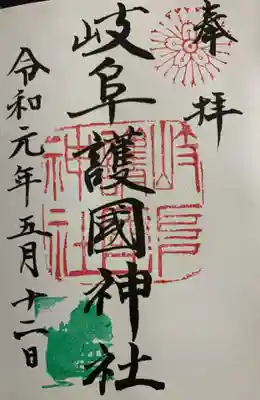 奉拝
岐阜護國神社
令和元年五月十二日
岐阜
護國
神社